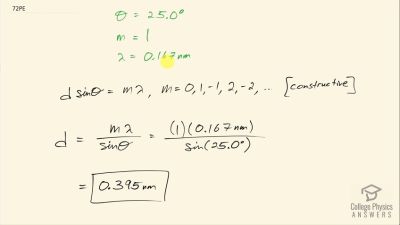 72PE
θ = 25.0°
m = 1
λ = 0.167 nm
d sinθ = mλ, m = 0, 1, -1, 2, -2, .. [constructive]
d = mλ / sinθ = (1)(0.167 nm) / sin(25.0°)
= 0.395 nm
College Physics
ANSWERS